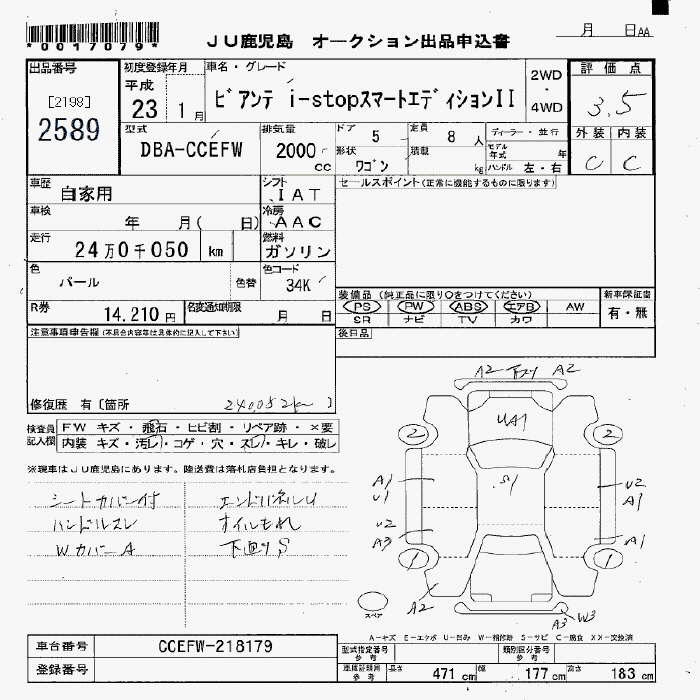 *0017079*
JU鹿児島 オークション出品申込書
月 日AA
出品番号
[2198]
2589
初度登録年月
平成
23 1月
車名・グレード
ビアンテ i-stopスマートエディションII
2WD
・
4WD
評価点
3.5
外装 内装
C C
型式
DBA-CCEFW
排気量
2000 cc
ドア 5
定員 8 人
形状 ワゴン
積載 kg
ディーラー・並行
モデル年式 年
ハンドル 左・右
車歴
自家用
シフト
IAT
セールスポイント(正常に機能するものに限ります)
車検
年 月( 日)
冷房
AAC
走行
24万0千050 km
燃料
ガソリン
色
パール
色替
色コード
34K
R券
14,210円
名変通知期限
月 日
装備品 (純正品に限り○をつけてください)
PS PW ABS エアB AW
SR ナビ TV カワ
新車保証書
有・無
注意事項申告欄(不具合内容等は具体的に記入して下さい)
後日品
修復歴 有〔箇所 240,052km 〕
検査員記入欄
FW キズ・飛石・ヒビ割・リペア跡・×要
内装 キズ・汚レ・コゲ・穴・スレ・キレ・破レ
※現車はJU鹿児島にあります。陸送費は落札店負担となります。
シートカバー付 エンドパネルU
ハンドルスレ オイルもれ
Wカバー A 下廻りS
A2 A2
UA1
2 2
A1
U1
S1
U2
A1
U2
A3
A1
1 1
A2
A3 W3
スペア
A-キズ E-エクボ U-凹み W-補修跡 S-サビ C-腐食 XX-交換済
車台番号 CCEFW-218179
登録番号
型式指定番号 参考
類別区分番号 参考
車庫証明用 参考 長さ 471cm 幅 177cm 高さ 183cm